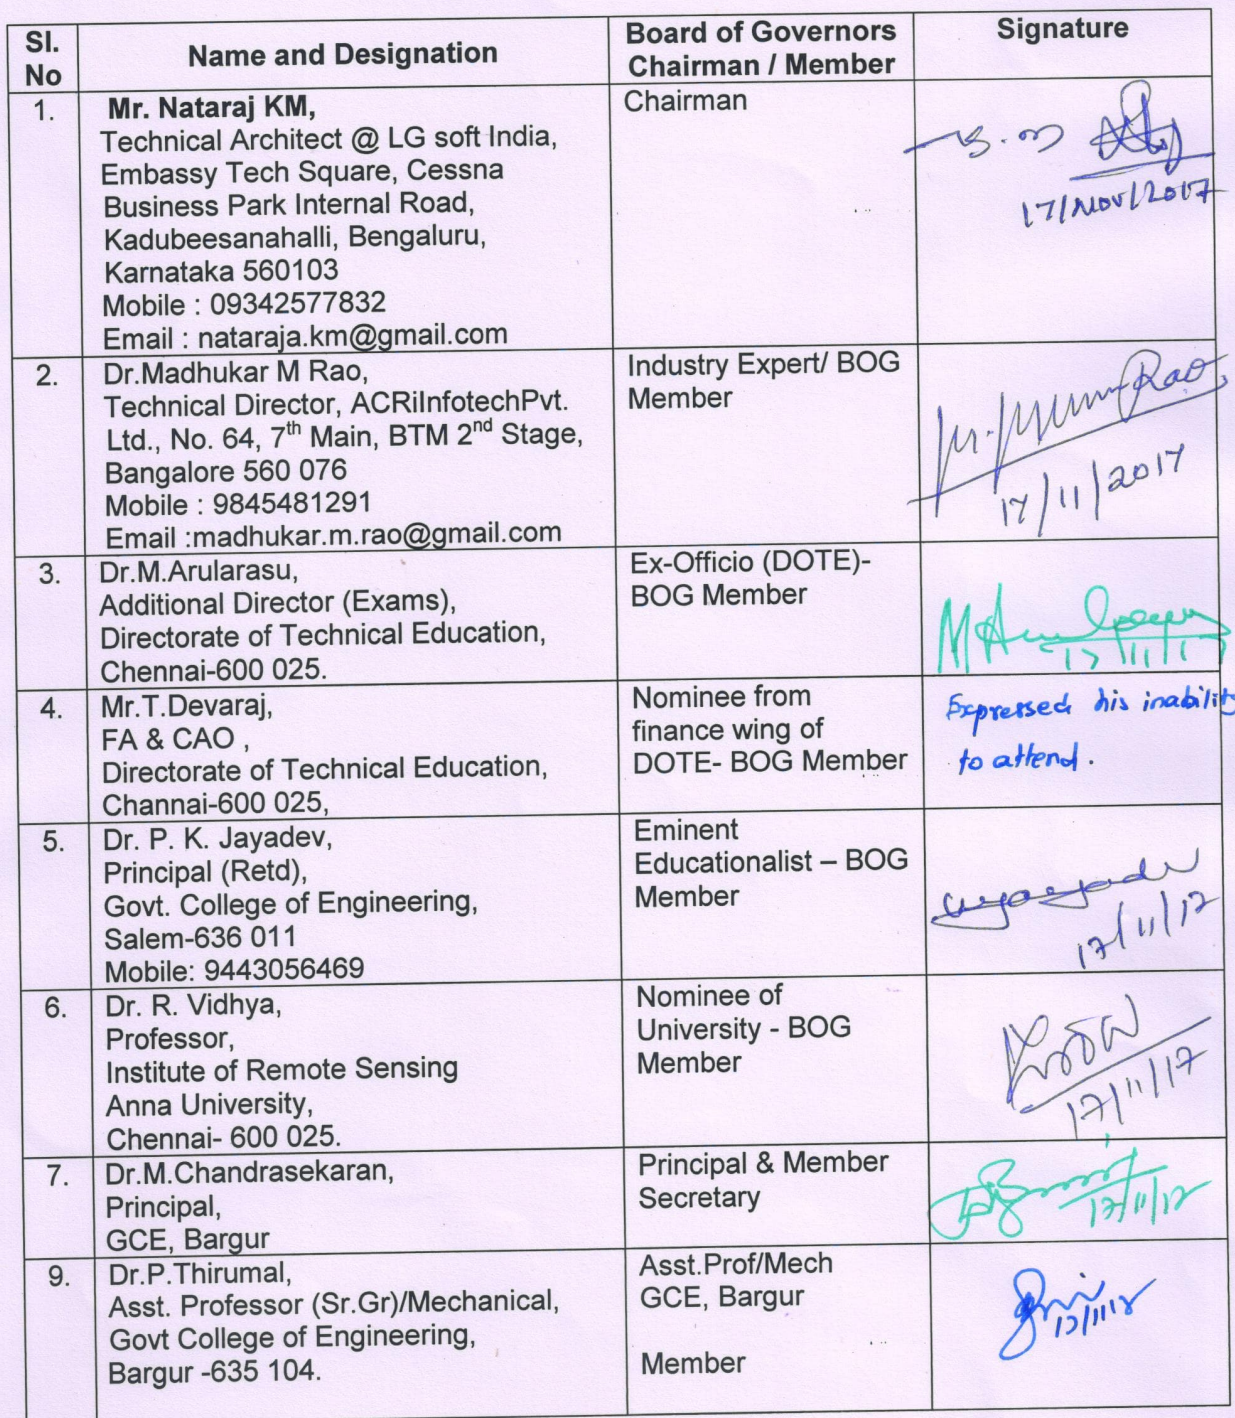 Sl. No
Name and Designation
Board of Governors Chairman / Member
Signature
1.
Mr. Nataraj KM,
Technical Architect @ LG soft India,
Embassy Tech Square, Cessna
Business Park Internal Road,
Kadubeesanahalli, Bengaluru,
Karnataka 560103
Mobile : 09342577832
Email : nataraja.km@gmail.com
Chairman
17/Nov/2017
2.
Dr.Madhukar M Rao,
Technical Director, ACRiInfotechPvt.
Ltd., No. 64, 7th Main, BTM 2nd Stage,
Bangalore 560 076
Mobile : 9845481291
Email :madhukar.m.rao@gmail.com
Industry Expert/ BOG
Member
Rao
17/11/2017
3.
Dr.M.Arularasu,
Additional Director (Exams),
Directorate of Technical Education,
Chennai-600 025.
Ex-Officio (DOTE)-
BOG Member
17/11/17
4.
Mr.T.Devaraj,
FA & CAO ,
Directorate of Technical Education,
Channai-600 025,
Nominee from
finance wing of
DOTE- BOG Member
Expressed his inability
to attend.
5.
Dr. P. K. Jayadev,
Principal (Retd),
Govt. College of Engineering,
Salem-636 011
Mobile: 9443056469
Eminent
Educationalist – BOG
Member
17/11/17
6.
Dr. R. Vidhya,
Professor,
Institute of Remote Sensing
Anna University,
Chennai- 600 025.
Nominee of
University - BOG
Member
17/11/17
7.
Dr.M.Chandrasekaran,
Principal,
GCE, Bargur
Principal & Member
Secretary
17/11/17
9.
Dr.P.Thirumal,
Asst. Professor (Sr.Gr)/Mechanical,
Govt College of Engineering,
Bargur -635 104.
Asst.Prof/Mech
GCE, Bargur
Member
17/11/17